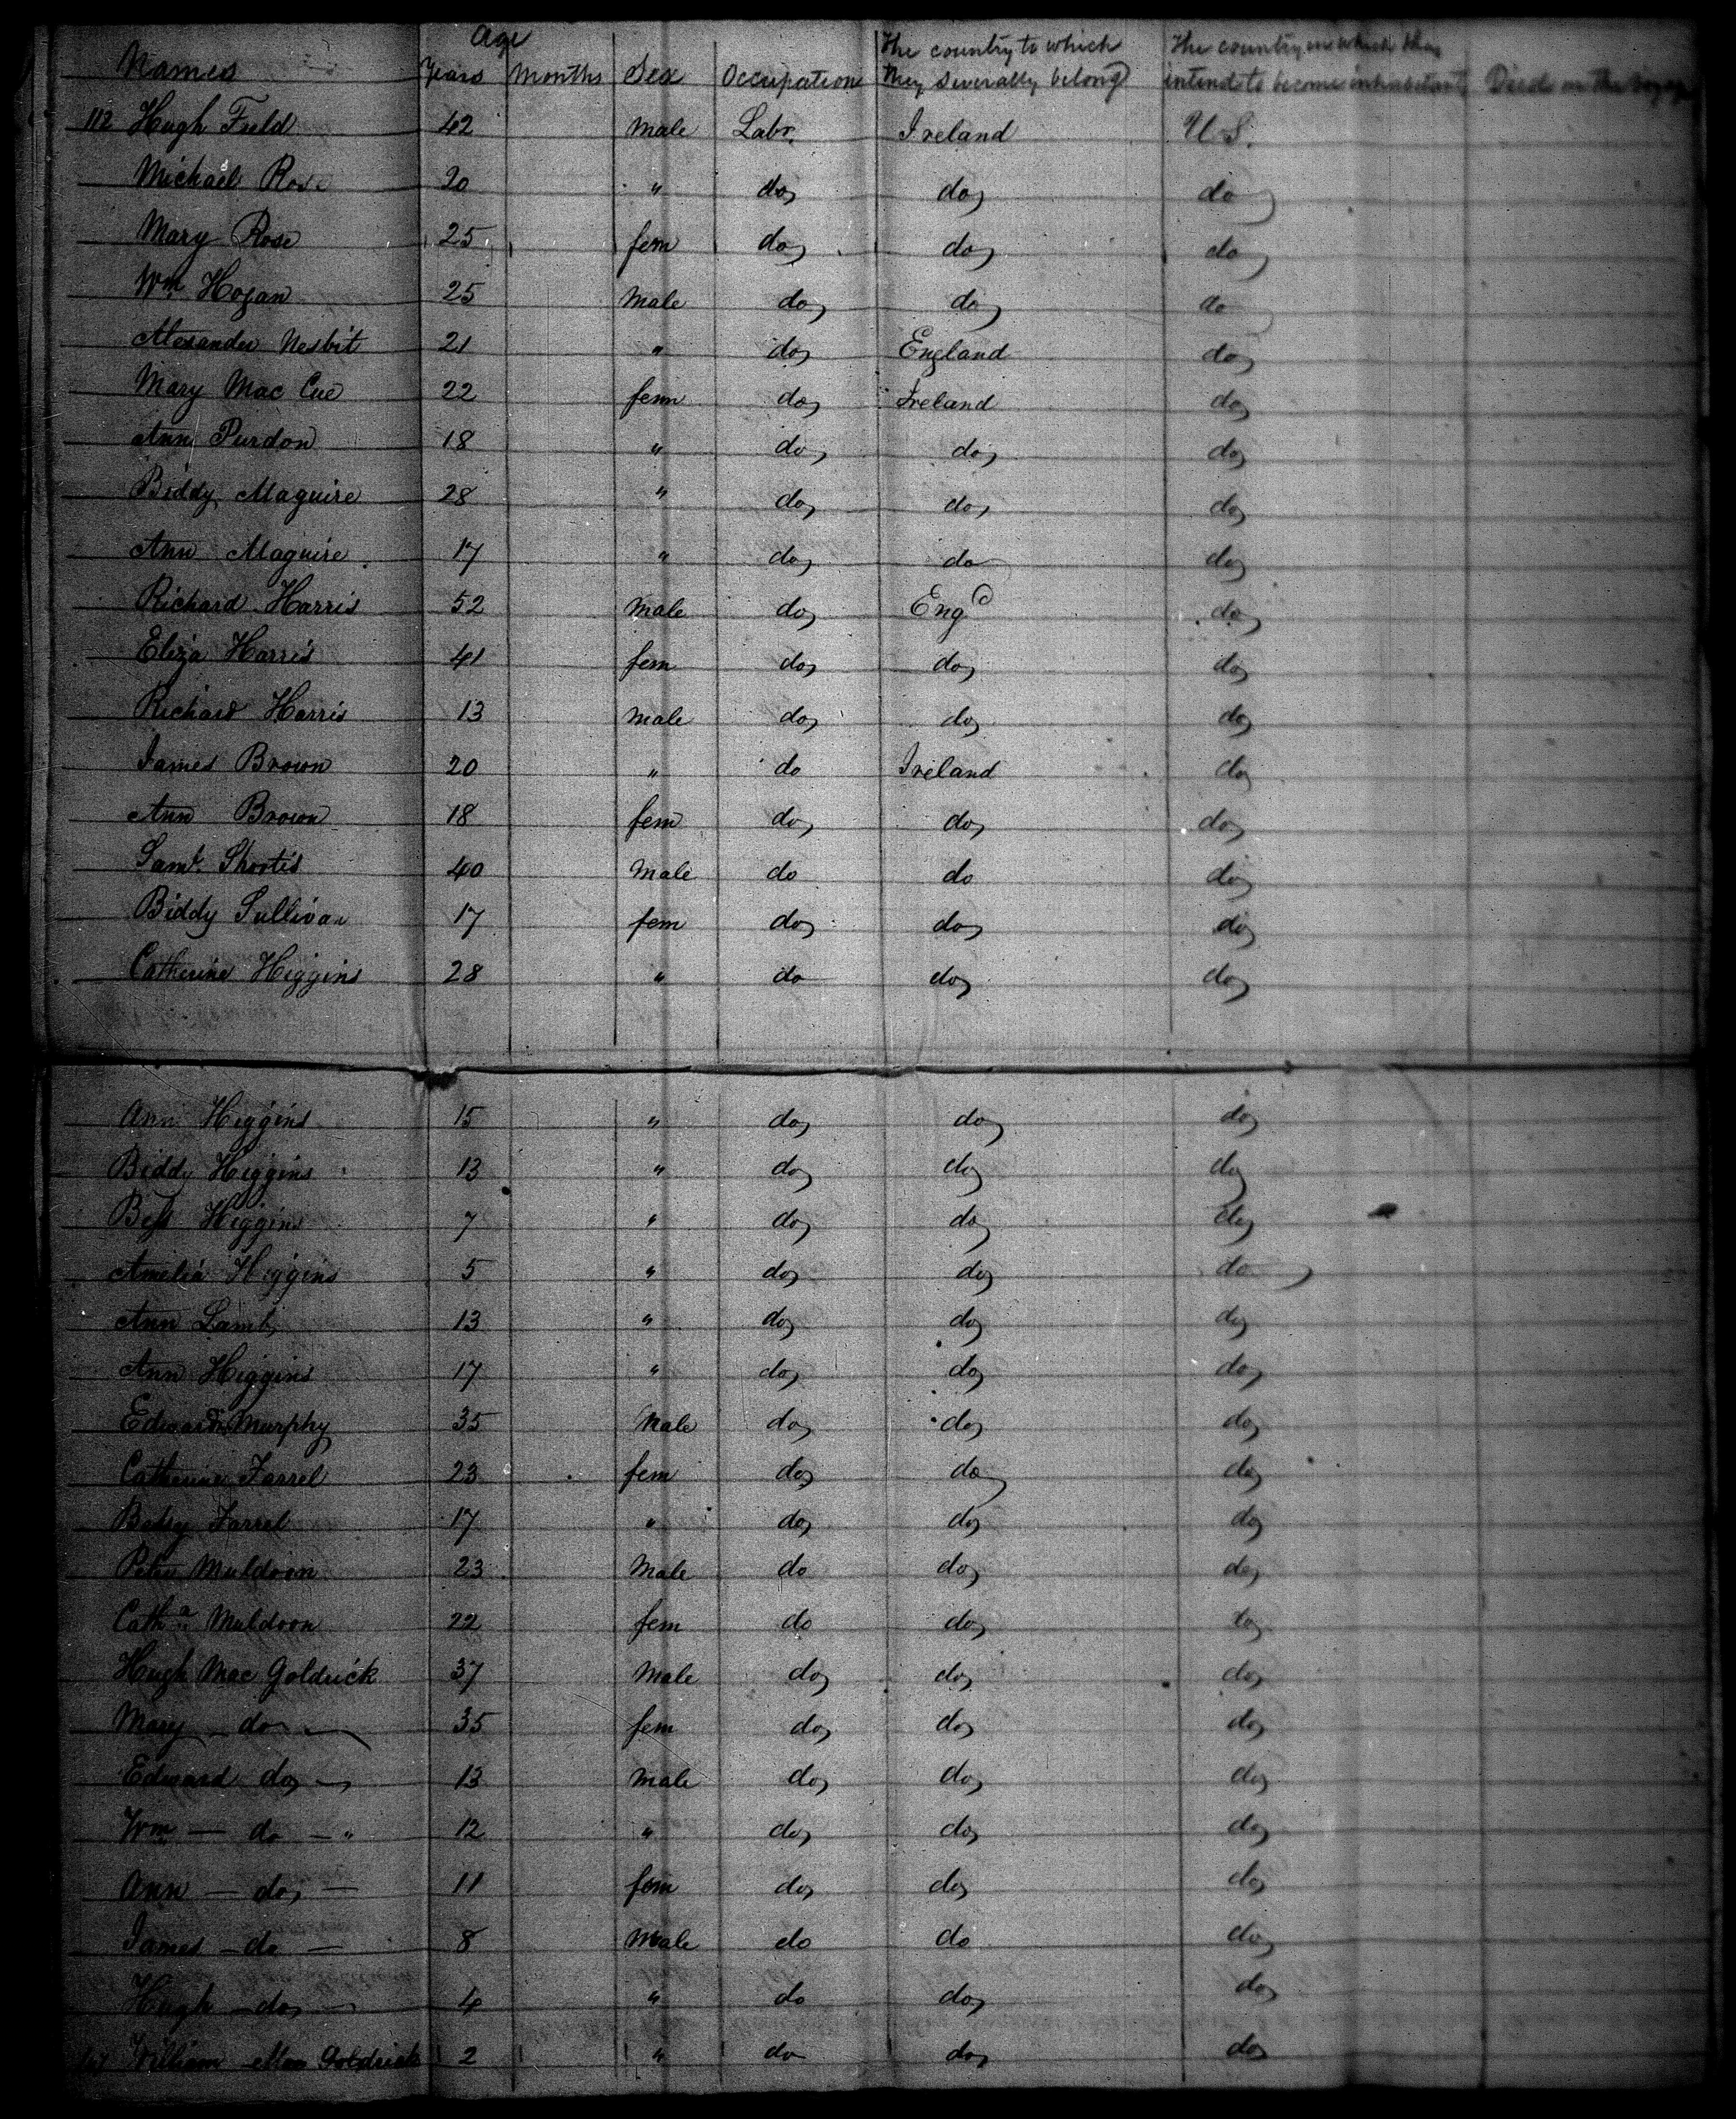 Age
Names Years Months Sex Occupation The country to which they severally belong The country in which they intend to become inhabitants Died on the voyage
112 Hugh Field 42 male Labr. Ireland U.S.
Michael Rose 20 " do do do
Mary Rose 25 fem do do do
Wm Hogan 25 Male do do do
Alexander Nesbit 21 " do England do
Mary Mac Cue 22 fem do Ireland do
Ann Purdon 18 " do do do
Biddy Maguire 28 " do do do
Ann Maguire 17 " do do do
Richard Harris 52 Male do Engd do
Eliza Harris 41 fem do do do
Richard Harris 13 Male do do do
James Brown 20 " do Ireland do
Ann Brown 18 fem do do do
Saml. Shortis 40 Male do do do
Biddy Sullivan 17 fem do do do
Catherine Higgins 28 " do do do
Ann Higgins 15 " do do do
Biddy Higgins 13 " do do do
Bess Higgins 7 " do do do
Amelia Higgins 5 " do do do
Ann Lamb 13 " do do do
Ann Higgins 17 " do do do
Edward Murphy 35 Male do do do
Catherine Farrel 23 fem do do do
Betsy Farrel 17 " do do do
Peter Muldoon 23 Male do do do
Catha Muldoon 22 fem do do do
Hugh Mac Goldrick 37 Male do do do
Mary do 35 fem do do do
Edward do 13 Male do do do
Wm — do — " 12 " do do do
Ann — do — 11 fem do do do
James — do — 8 Male do do do
Hugh — do — 4 " do do do
William Mac Goldrick 2 " do do do